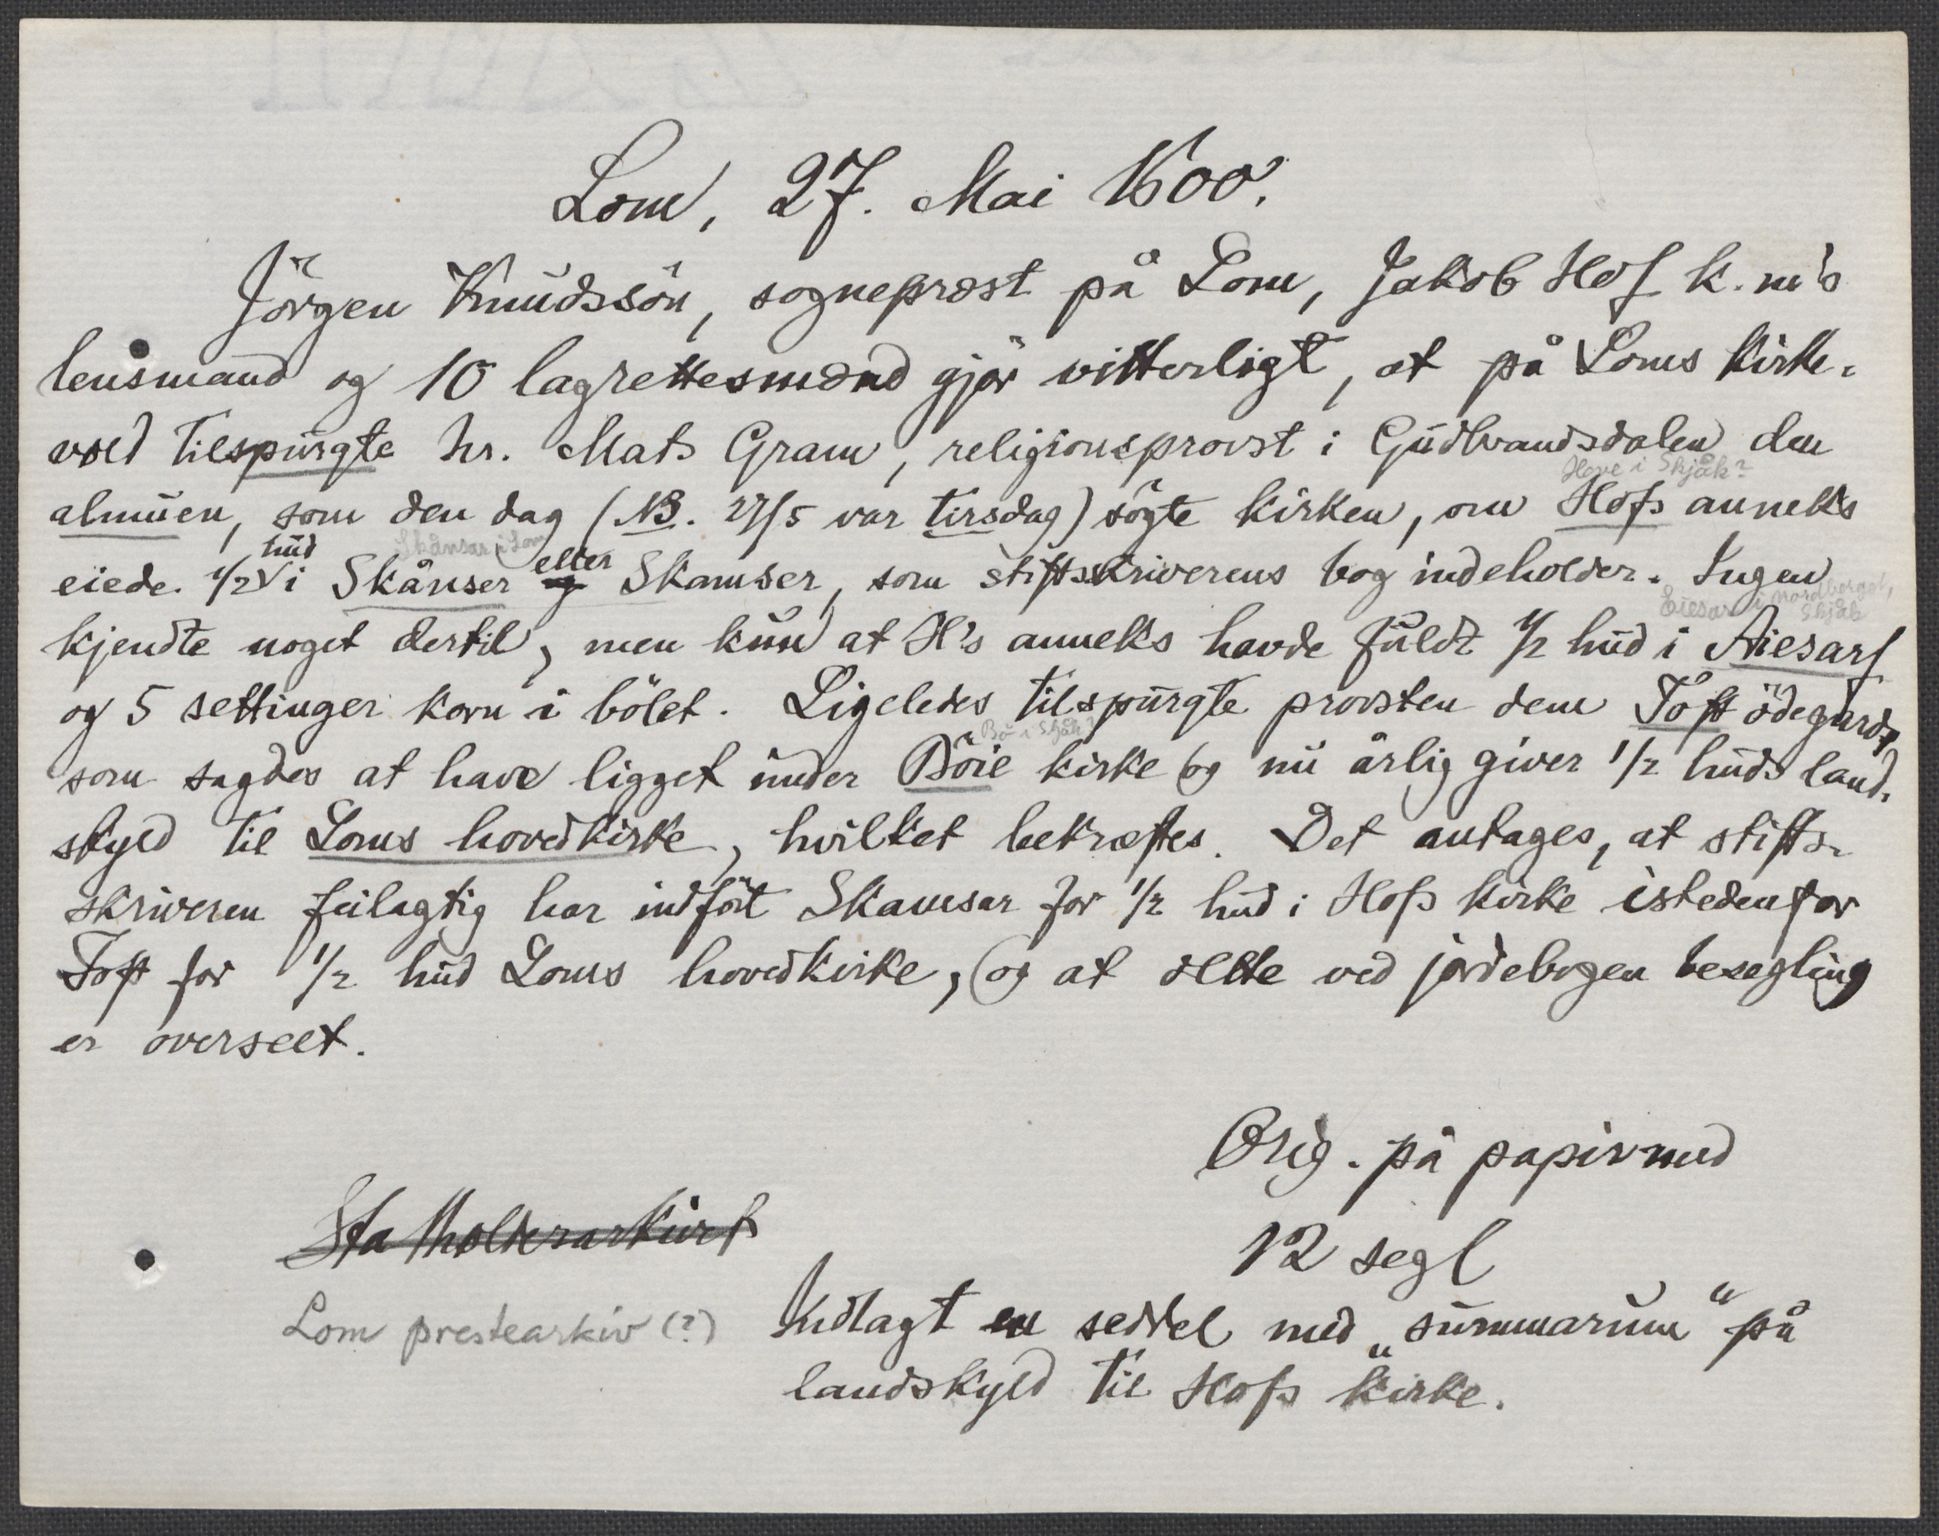 Lom, 27. Mai 1600.
Jörgen Knudssön, sognepræst på Lom, Jakob Hof k. m's
lensmand og 10 lagrettesmænd gjör vitterligt, at på Loms kirke-
vold tilspurgte hr. Mats Gram, religionsprovst i Gudbrandsdalen den
Hove i Skjåk?
almuen, som den dag (NB. 27/5 var tirsdag) sögte kirken, om Hofs anneks
hud Skånsar i Lom eller
eiede 1/2 i Skånser og Skamser, som stiftsskriverens bog indeholder. Ingen
Eiesar i Nordberget, Skjåk
kjendte noget dertil, men kun at H's anneks havde fuldt 1/2 hud i Aiesarf
og 5 settinger korn i bölet. Ligeledes tilspurgte provsten dem Toft ödegard,
Bö i Skjåk?
som sagdes at have ligget under Böie kirke og nu årlig giver 1/2 huds land-
skyld til Loms hovedkirke, hvilket bekræftes. Det antages, at stifts-
skriveren feilagtig har indfört Skamsar for 1/2 hud i Hofs kirke istedenfor
Toft for 1/2 hud Loms hovedkirke, og at dette ved jordebogen besegling
er overseet.
Orig. på papir med
12 segl
Statholderarkivet
Lom prestearkiv (?)
Indlagt en seddel med „summarum“ på
landskyld til Hofs kirke.